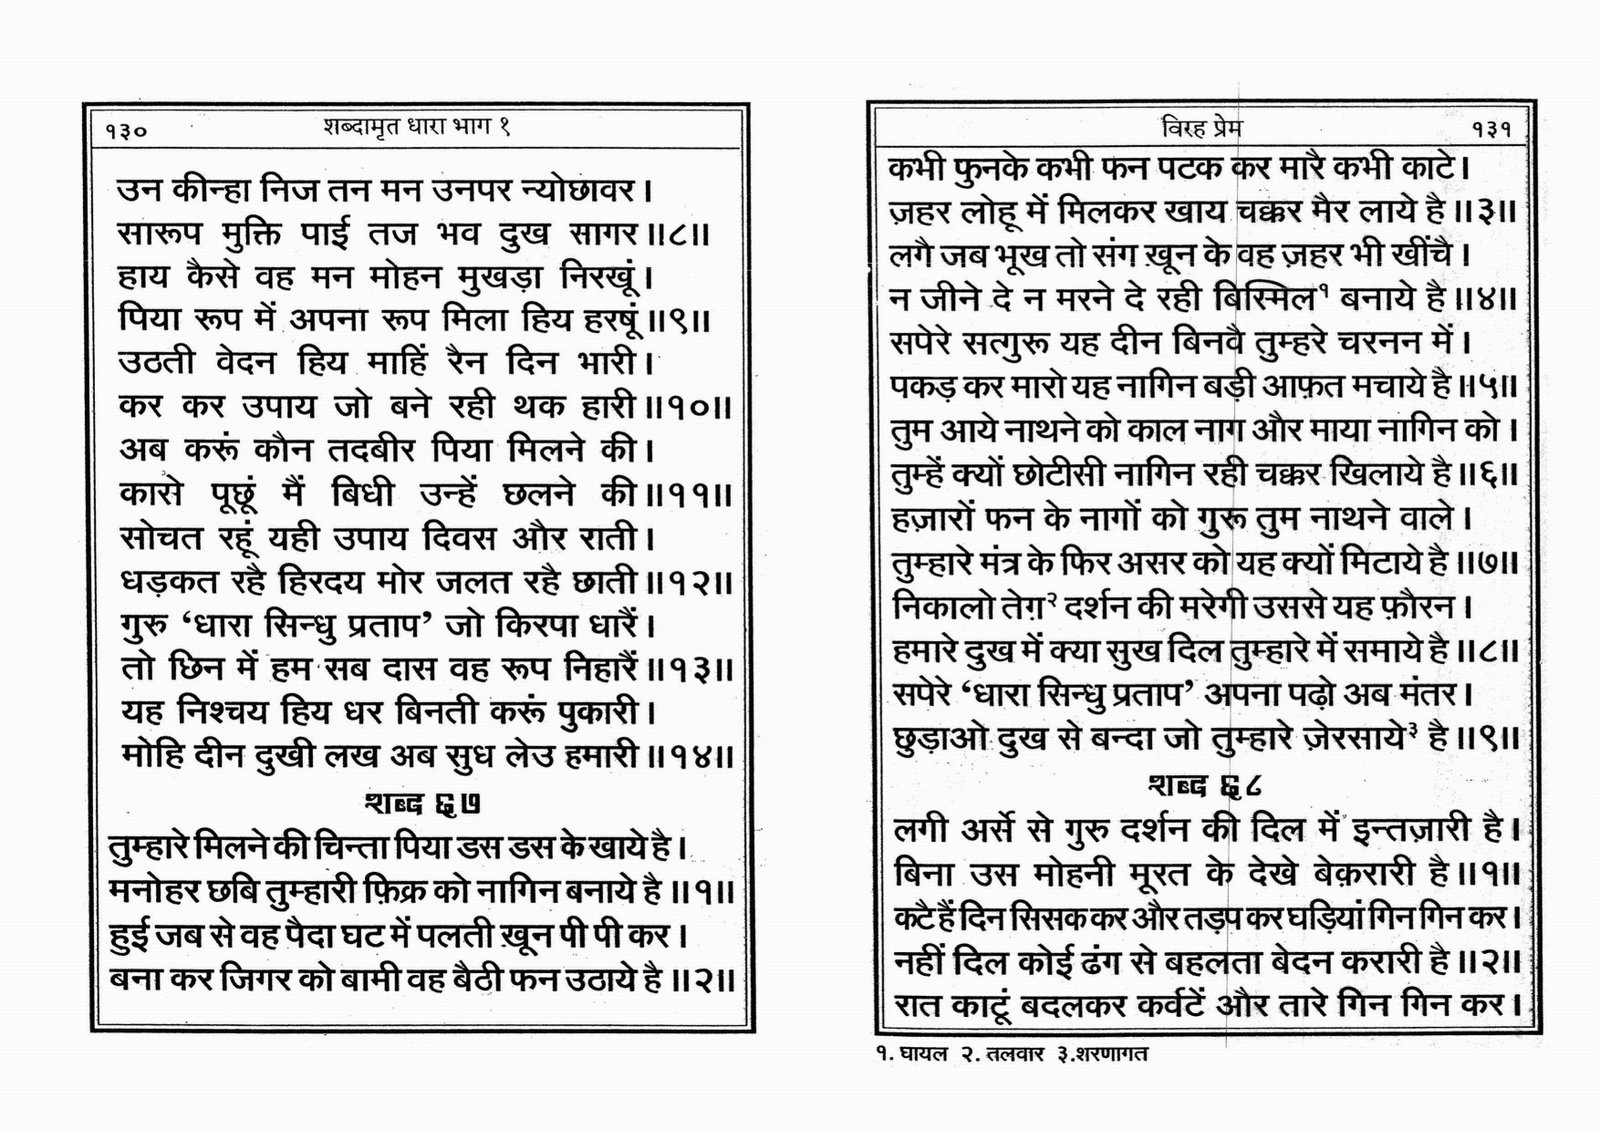 १३० शब्दामृत धारा भाग १
उन कीन्हा निज तन मन उनपर न्योछावर ।
सारूप मुक्ति पाई तज भव दुख सागर ॥८॥
हाय कैसे वह मन मोहन मुखड़ा निरखूं ।
पिया रूप में अपना रूप मिला हिय हरषूं ॥९॥
उठती वेदन हिय माहिं रैन दिन भारी ।
कर कर उपाय जो बने रही थक हारी ॥१०॥
अब करूं कौन तदबीर पिया मिलने की ।
कासे पूछूं मैं बिधी उन्हें छलने की ॥११॥
सोचत रहूं यही उपाय दिवस और राती ।
धड़कत रहै हिरदय मोर जलत रहै छाती ॥१२॥
गुरु ‘धारा सिन्धु प्रताप’ जो किरपा धारैं ।
तो छिन में हम सब दास वह रूप निहारैं ॥१३॥
यह निश्चय हिय धर बिनती करूं पुकारी ।
मोहि दीन दुखी लख अब सुध लेउ हमारी ॥१४॥
शब्द ६७
तुम्हारे मिलने की चिन्ता पिया डस डस के खाये है ।
मनोहर छबि तुम्हारी फ़िक्र को नागिन बनाये है ॥१॥
हुई जब से वह पैदा घट में पलती ख़ून पी पी कर ।
बना कर जिगर को बामी वह बैठी फन उठाये है ॥२॥
विरह प्रेम १३१
कभी फुनके कभी फन पटक कर मारै कभी काटे ।
ज़हर लोहू में मिलकर खाय चक्कर मैर लाये है ॥३॥
लगै जब भूख तो संग ख़ून के वह ज़हर भी खींचै ।
न जीने दे न मरने दे रही बिस्मिल१ बनाये है ॥४॥
सपेरे सत्गुरू यह दीन बिनवै तुम्हरे चरनन में ।
पकड़ कर मारो यह नागिन बड़ी आफ़त मचाये है ॥५॥
तुम आये नाथने को काल नाग और माया नागिन को ।
तुम्हें क्यों छोटीसी नागिन रही चक्कर खिलाये है ॥६॥
हज़ारों फन के नागों को गुरू तुम नाथने वाले ।
तुम्हारे मंत्र के फिर असर को यह क्यों मिटाये है ॥७॥
निकालो तेग़२ दर्शन की मरेगी उससे यह फ़ौरन ।
हमारे दुख में क्या सुख दिल तुम्हारे में समाये है ॥८॥
सपेरे ‘धारा सिन्धु प्रताप’ अपना पढ़ो अब मंतर ।
छुड़ाओ दुख से बन्दा जो तुम्हारे ज़ेरसाये३ है ॥९॥
शब्द ६८
लगी अर्से से गुरु दर्शन की दिल में इन्तज़ारी है ।
बिना उस मोहनी मूरत के देखे बेक़रारी है ॥१॥
कटै हैं दिन सिसक कर और तड़प कर घड़ियां गिन गिन कर ।
नहीं दिल कोई ढंग से बहलता बेदन करारी है ॥२॥
रात काटूं बदलकर कर्वटें और तारे गिन गिन कर ।
१. घायल २. तलवार ३.शरणागत